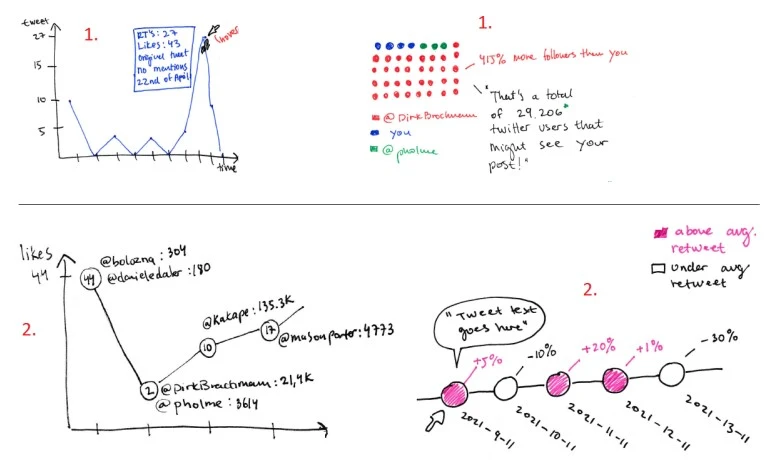 tweet
27
15
10
5
1.
RT's: 27
Likes: 43
original tweet
no mentions
22nd of April
hover
time
1.
415% more followers than you
"That's a total
of 29.206
twitter users that
might see your
post!"
@DirkBrochmann
you
@pholme
likes
44
2.
44
@bolozna: 304
@danieledaler: 180
2
@DirkBrachmann: 21,4K
@pholme: 3614
10
@Kakape: 135.3K
17
@masonporter: 4773
above avg.
retweet
under avg
retweet
2.
"Tweet text
goes here"
+5%
-10%
+20%
+1%
-30%
2021-9-11
2021-10-11
2021-11-11
2021-12-11
2021-13-11